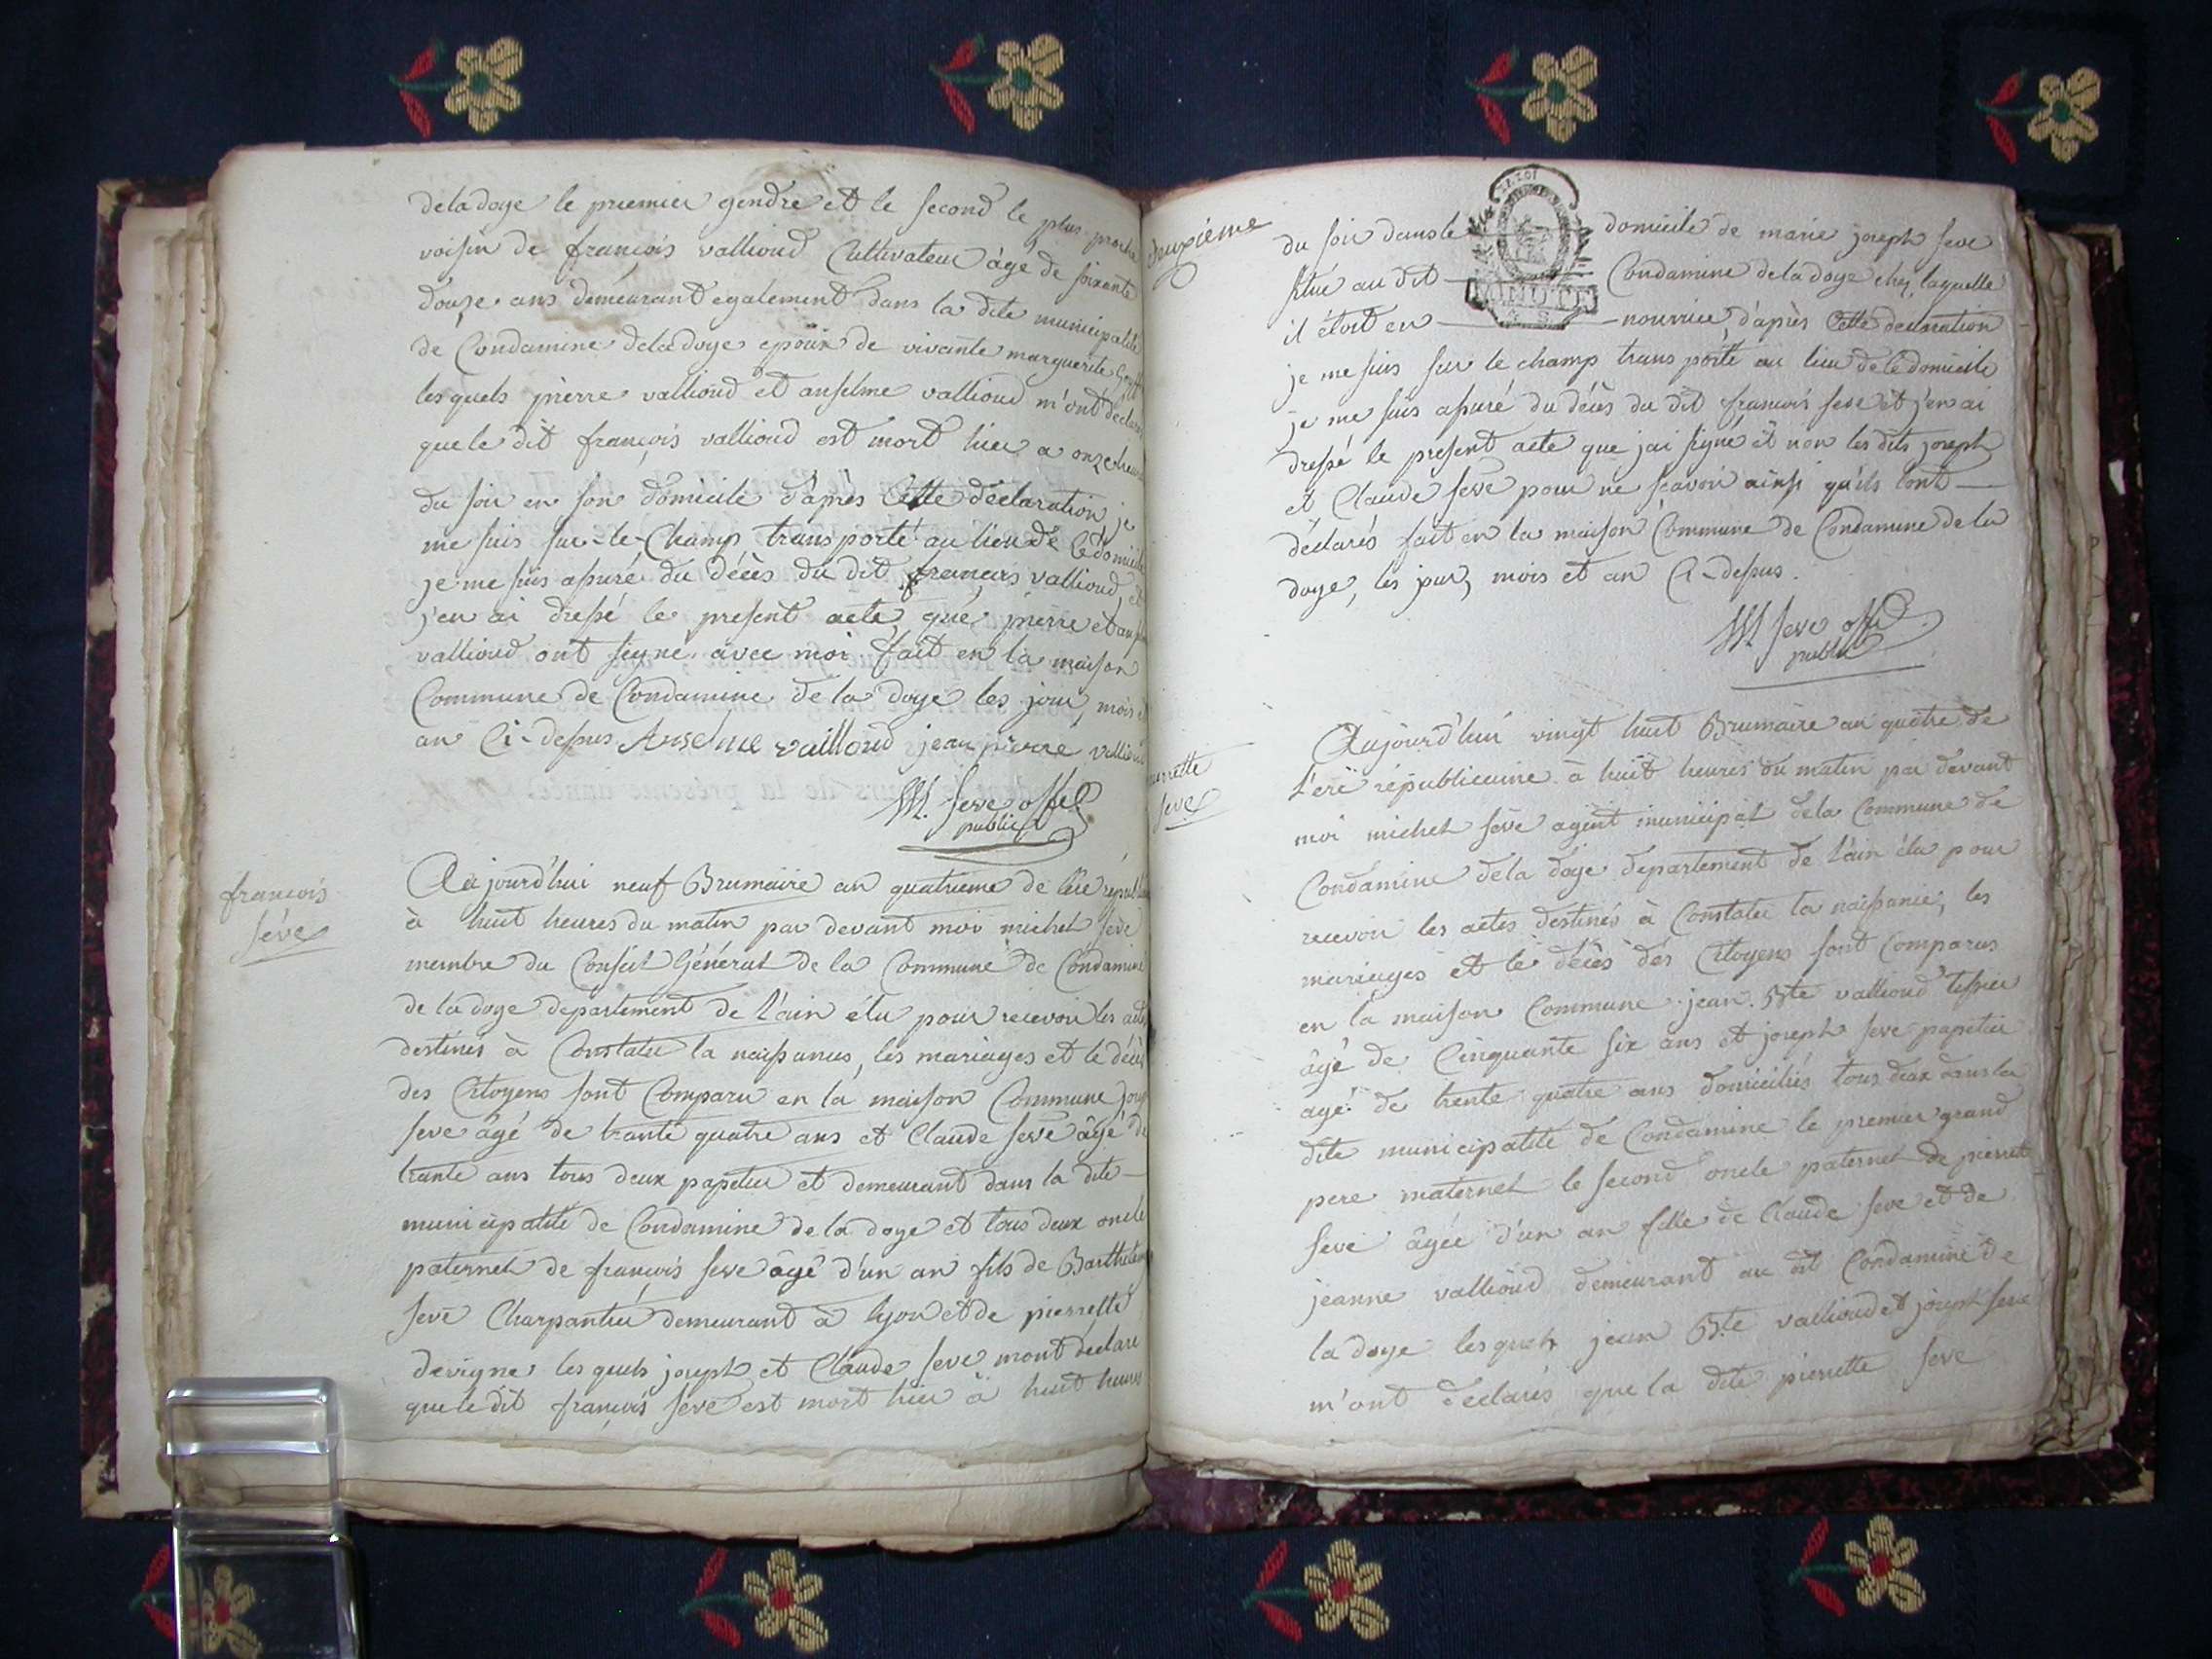 de la doye le premier gendre et le second le plus proche
voisin de françois vallioud Cultivateur âgé de soixante
douze ans demeurant egalement dans la dite municipalité
de Condamine de la doye epoux de vivante marguerite
les quels pierre vallioud et anselme vallioud m'ont déclaré
que le dit françois vallioud est mort hier a onze heures
du soir en son domicile d'après Cette déclaration, je
me suis sur-le-Champ transporté au lieu de ce domicile
je me suis assuré du décès du dit françois vallioud, et
j'en ai dressé le present acte, que pierre et
vallioud ont signé avec moi fait en la maison
Commune de Condamine de la doye les jour, mois et
an Ci-dessus Anselme vailloud jean pierre vallioud
M. seve offe
public
françois
séve
Aujourd'hui neuf Brumaire an quatrieme de l'ère
à huit heures du matin par devant moi michel séve
membre du Conseil Général de la Commune de Condamine
de la doye departement de l'ain élu pour recevoir les actes
destinés à Constater la naissances, les mariages et le décès
des Citoyens sont Comparu en la maison Commune
seve âgé de trante quatre ans et Claude seve âgé de
trante ans tous deux papetier et demeurant dans la dite
municipalité de Condamine de la doye et tous deux oncle
paternel de françois seve âgé d'un an fils de Barthelemy
seve Charpantier demeurant à lyon et de pierrette
devigne les quels joseph et Claude seve mont declaré
que le dit françois seve est mort hier à huit heures
deuxième
du soir dans le domicile de marie joseph seve
situé au dit Condamine de la doye chez laquelle
il étoit en nourrice, d'après Cette declaration
je me suis sur le champ transporté au lieu de le domicile
je me suis assuré du décès du dit françois seve et j'en ai
dressé le present acte que jai signé et non les dits joseph
et Claude seve pour ne sçavoir ainsi qu'ils lont
déclarés fait en la maison Commune de Condamine de la
doye, les jour, mois et an Ci-dessus.
M. seve offe
public
seve
Aujourd'hui vingt huit Brumaire an quatre de
l'ere républicaine à huit heures du matin par devant
moi michel séve agent municipal de la Commune de
Condamine de la doye departement de l'ain élu pour
recevoir les actes destinés à Constater la naissance, les
mariages et le décès des Citoyens sont Comparus
en la maison Commune jean Bte vallioud tissier
âgé de Cinquante six ans et joseph seve papetier
agé de trente quatre ans domiciliés tous deux dans la
dite municipalité de Condamine le premier grand
pere maternel le second oncle paternel de pierrette
seve âgée d'un an fille de Claude seve et de
jeanne vallioud demeurant au dit Condamine de
la doye lesquels jean Bte vallioud et joseph seve
m'ont déclarés que la dite pierrette seve